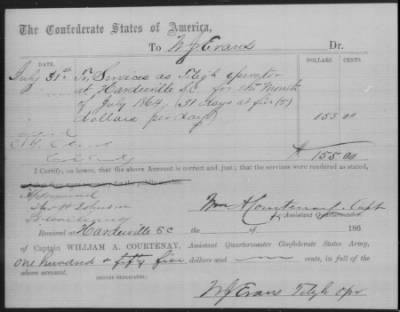 The Confederate States of America,
To W J Evans Dr.
DOLLARS CENTS
July 31st To Services as Telegh operator
at Hardeeville S.C for the Month
of July 1864. (31 days at five (5)
dollars per day) 155 00
$ 155.00
I Certify, on honor, that the above Account is correct and just; that the services were rendered as stated,
Approved
Johnson
Wm A Courtenay Capt
Assistant Quartermaster
Received at Hardeeville SC the of 186
of Captain WILLIAM A. COURTENAY, Assistant Quartermaster Confederate States Army,
One hundred & fifty five dollars and no cents, in full of the
above account.
[SIGNED DUPLICATES.]
W J Evans Telgh Opr